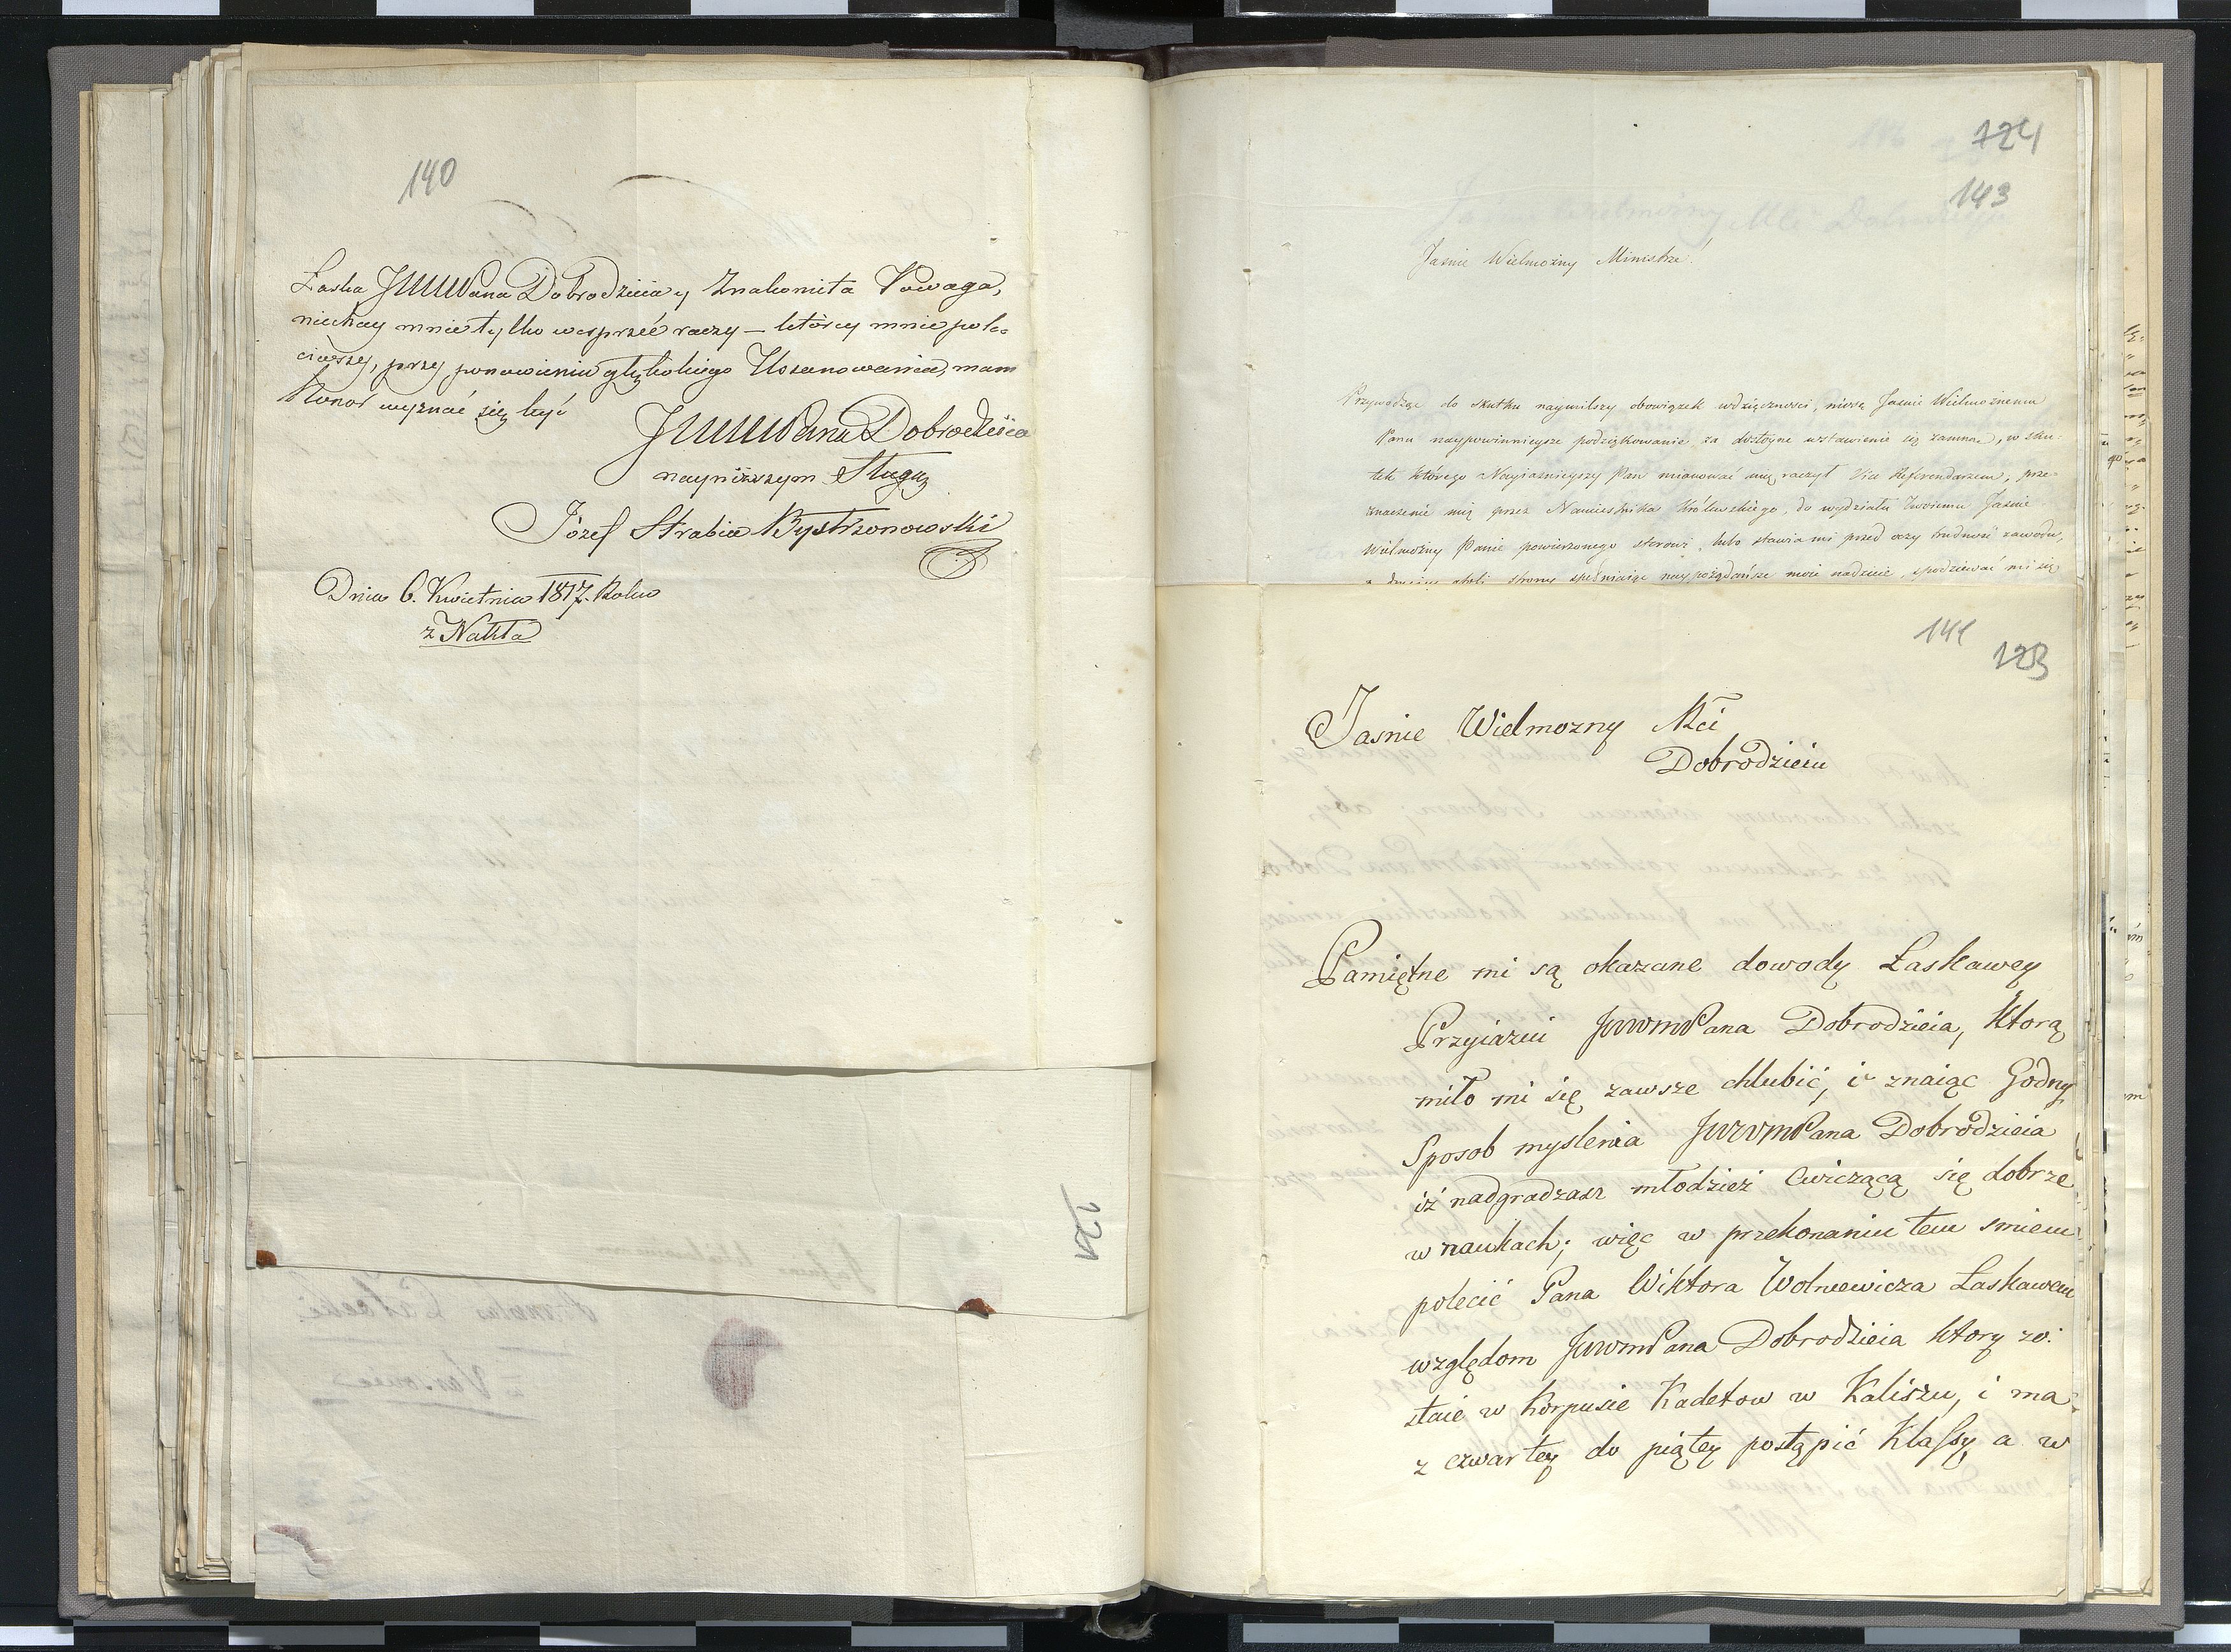 140
Łaska JWWWPana Dobrodzieia y Znakomita Powaga,
niechay mnie tylko wesprzeć raczy — którey mnie pole-
ciwszy, przy ponowieniu głębokiego Uszanowania, mam
Honor wyznać się być
JWWWPana Dobrodzieia
nayniższym Sługą
Józef Hrabia Bystrzonowski
Dnia 6. Kwietnia 1817. Roku
z Nakła
121
124
143
Jaśnie Wielmożny Ministrze!
Przywodząc do skutku naymilszy obowiązek wdzięczności, niosę Jaśnie Wielmożnemu
Panu naypowinnieysze podziękowanie, za dostoyne wstawienie się zamną, w sku-
tek którego Nayiaśnieyszy Pan mianować mię raczył Vice Referendarzem, prze-
znaczenie mię przez Namiestnika Królewskiego, do wydziału Twoiemu Jaśnie
Wielmożny Panie powierzonego sterowi, lubo stawia mi przed oczy trudność zawodu,
strony spełniaiąc naypożądańsze moie nadzieie, spodziewać mi się
141
123
Jasnie Wielmozny Mci
Dobrodzieiu
Pamiętne mi są okazane dowody Łaskawey
Przyiazni JWWMPana Dobrodzieia, Ktorą
miło mi się zawsze chlubić, i znaiąc Godny
Sposob myslenia JWWMPana Dobrodzieia
iż nadgradzasz młodzież Cwiczącą się dobrze
w naukach; więc w przekonaniu tem smiem
polecić Pana Wiktora Wolniewicza Łaskawem
względom JWWMPana Dobrodzieia Ktory zo:
staie w Korpusie Kadetow w Kaliszu, i ma
z czwartey do piątey postąpić Klassy, a w